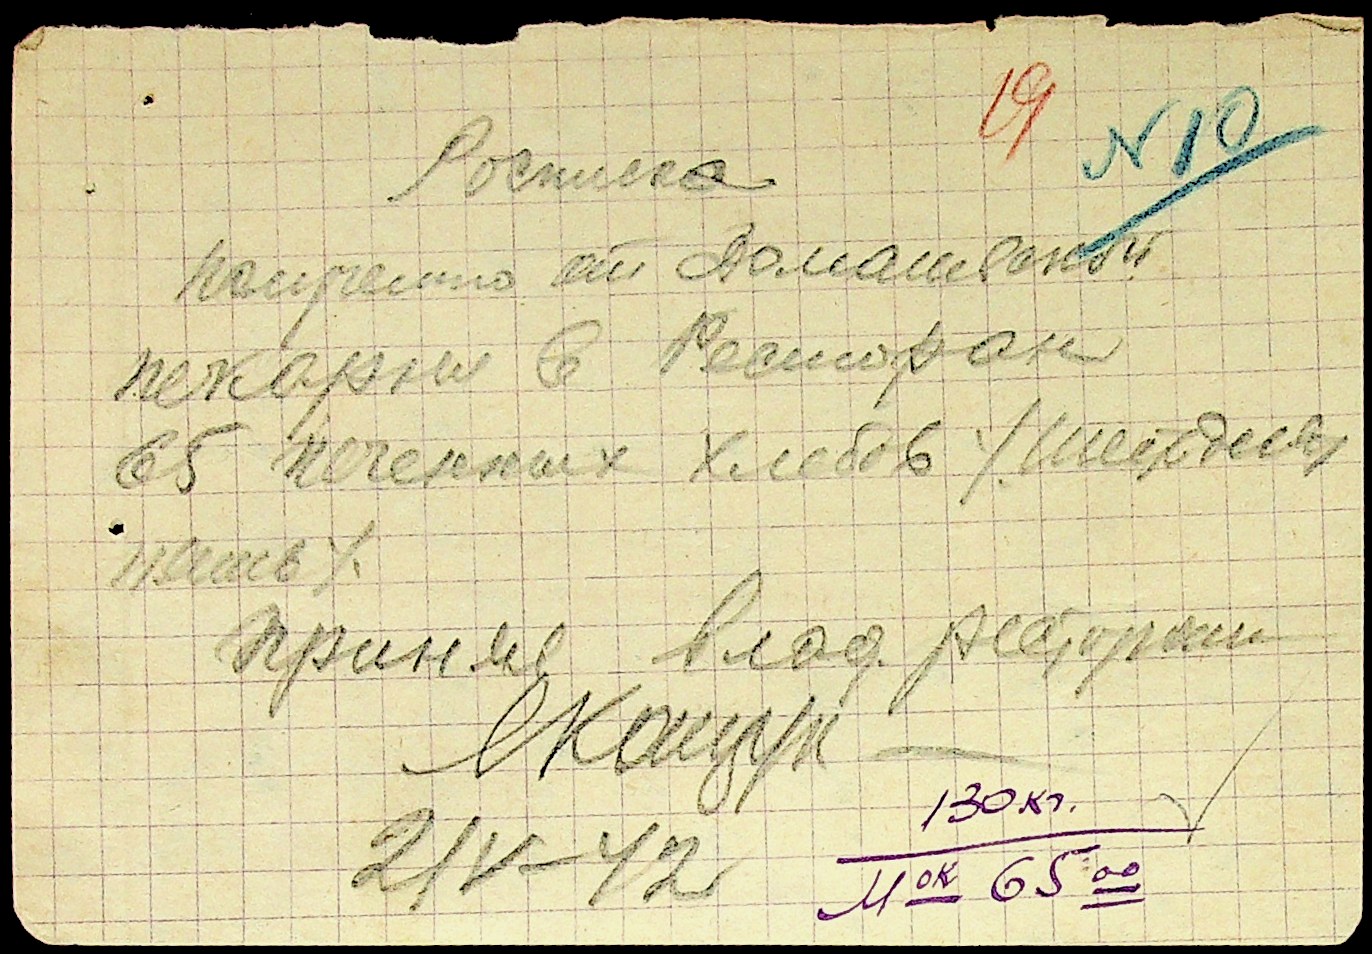 19
N 10
Росписка
получено от Домашевской
пекарни в Ресторан
65 печенных хлебов /.шестдесят
пять/.
принял влад. ресторани
21/V-42
130 кг.
Мок 65 00